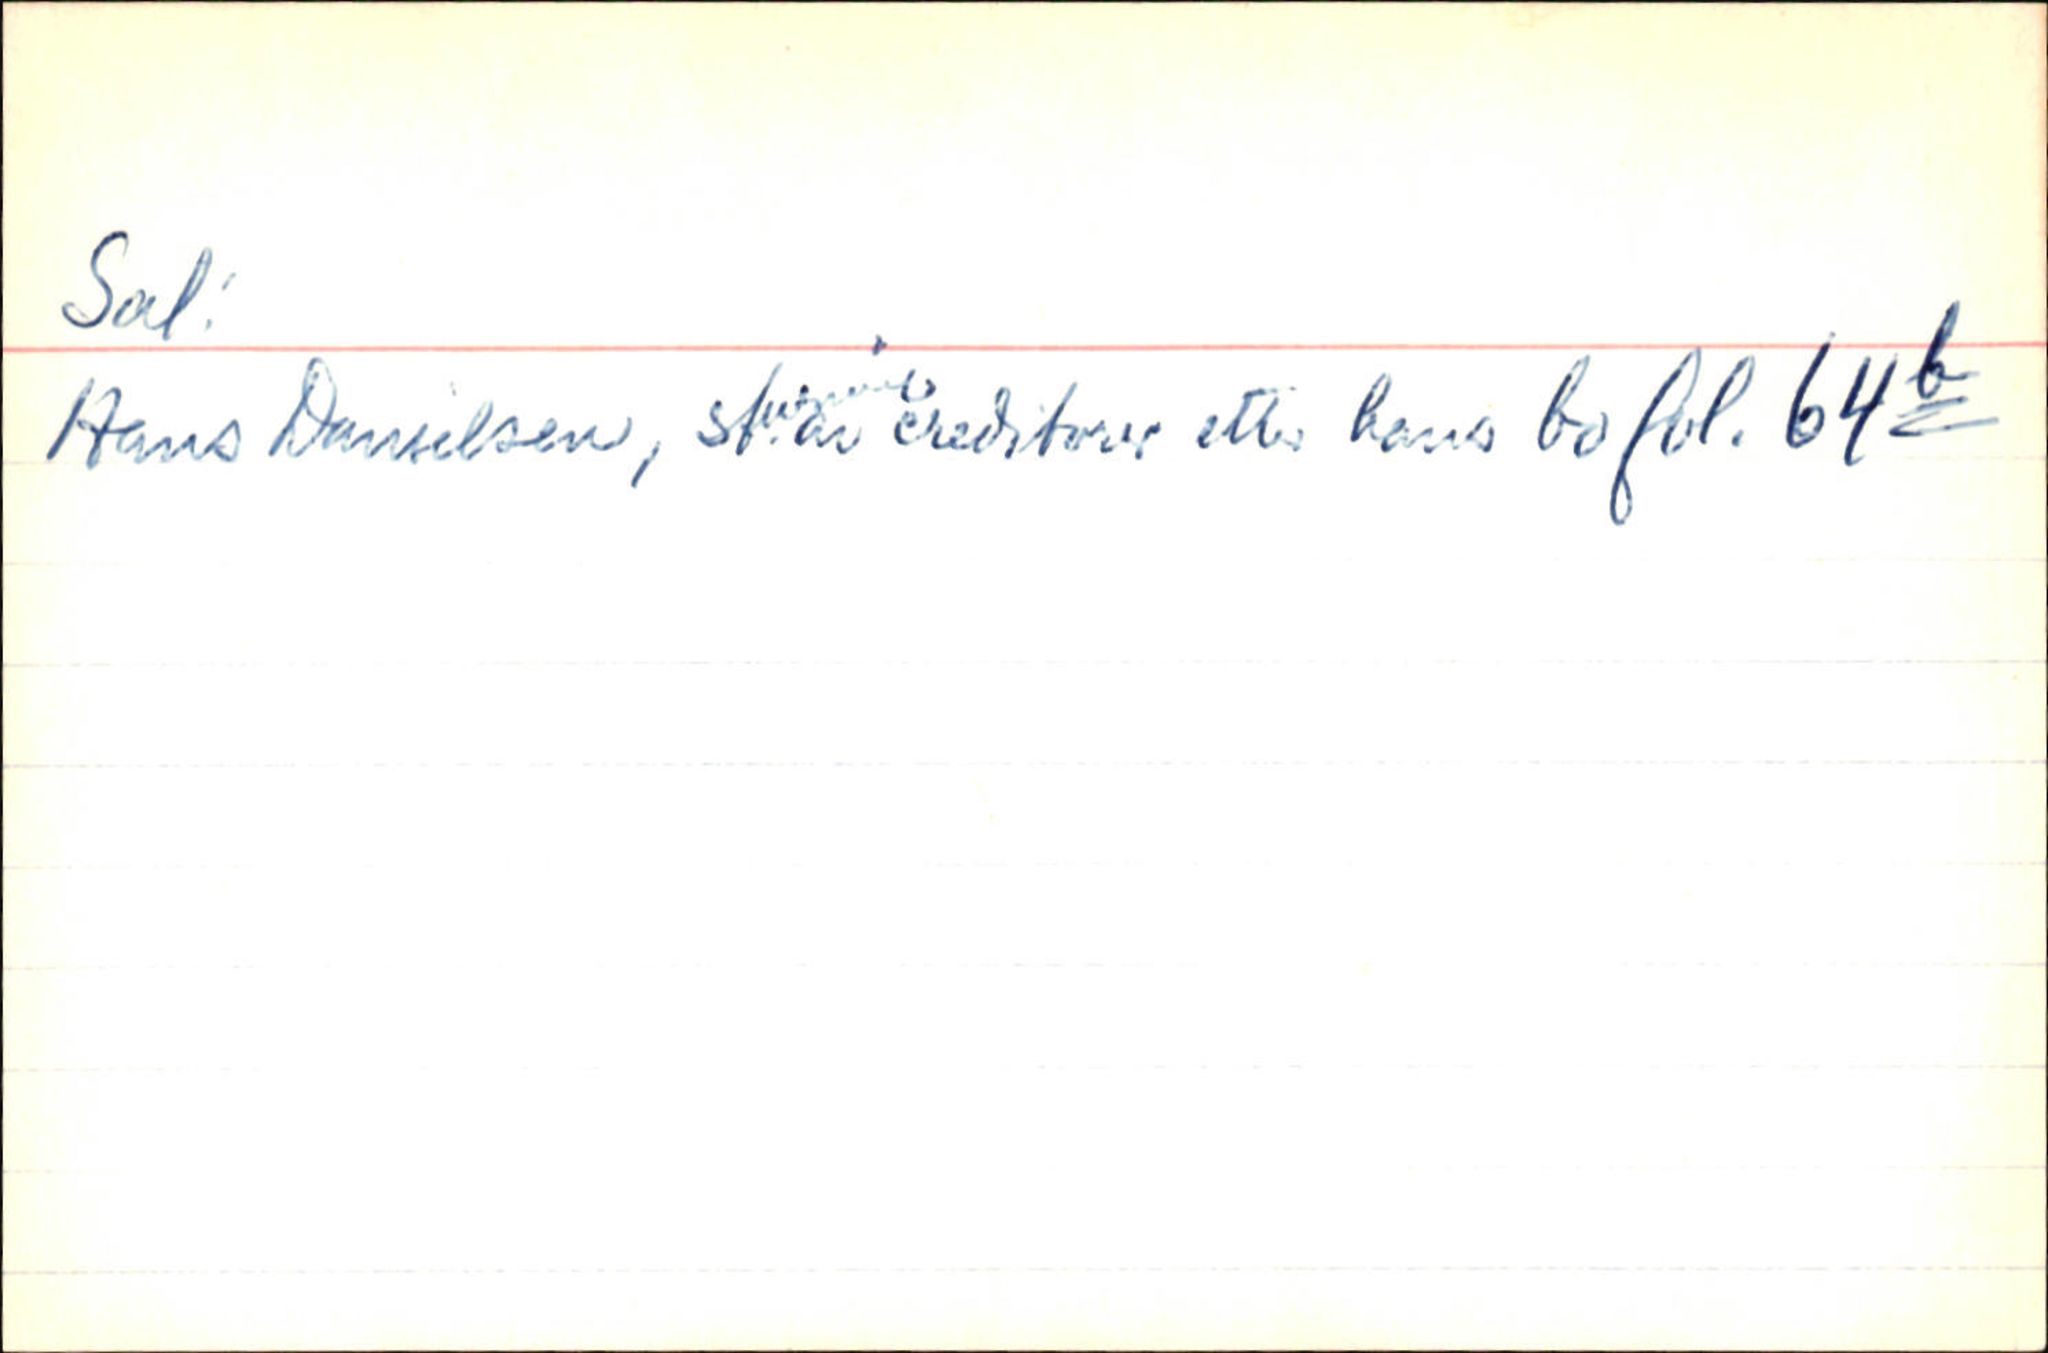 Sal:
Hans Danielsen, st. av creditorer etter hans bo fol. 64b